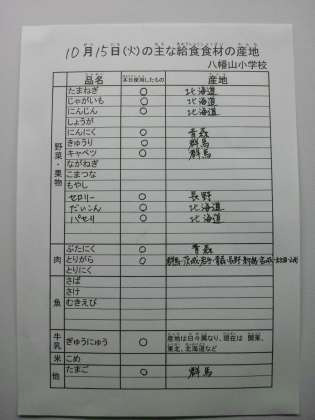 10月15日(火)の主な給食食材の産地
八幡山小学校
品名 本日使用したもの 産地
野菜・果物
たまねぎ ○ 北海道
じゃがいも ○ 北海道
にんじん ○ 北海道
しょうが
にんにく ○ 青森
きゅうり ○ 群馬
キャベツ ○ 群馬
ながねぎ
こまつな
もやし
セロリー ○ 長野
だいこん ○ 北海道
パセリ ○ 北海道
肉
ぶたにく ○ 青森
とりがら ○ 群馬・茨城・岩手・青森・長野・新潟・宮城
とりにく
魚
さば
さけ
むきえび
牛乳
ぎゅうにゅう ○ 産地は日々異なり、現在は 関東、
東北、北海道など
米 こめ
他 たまご ○ 群馬